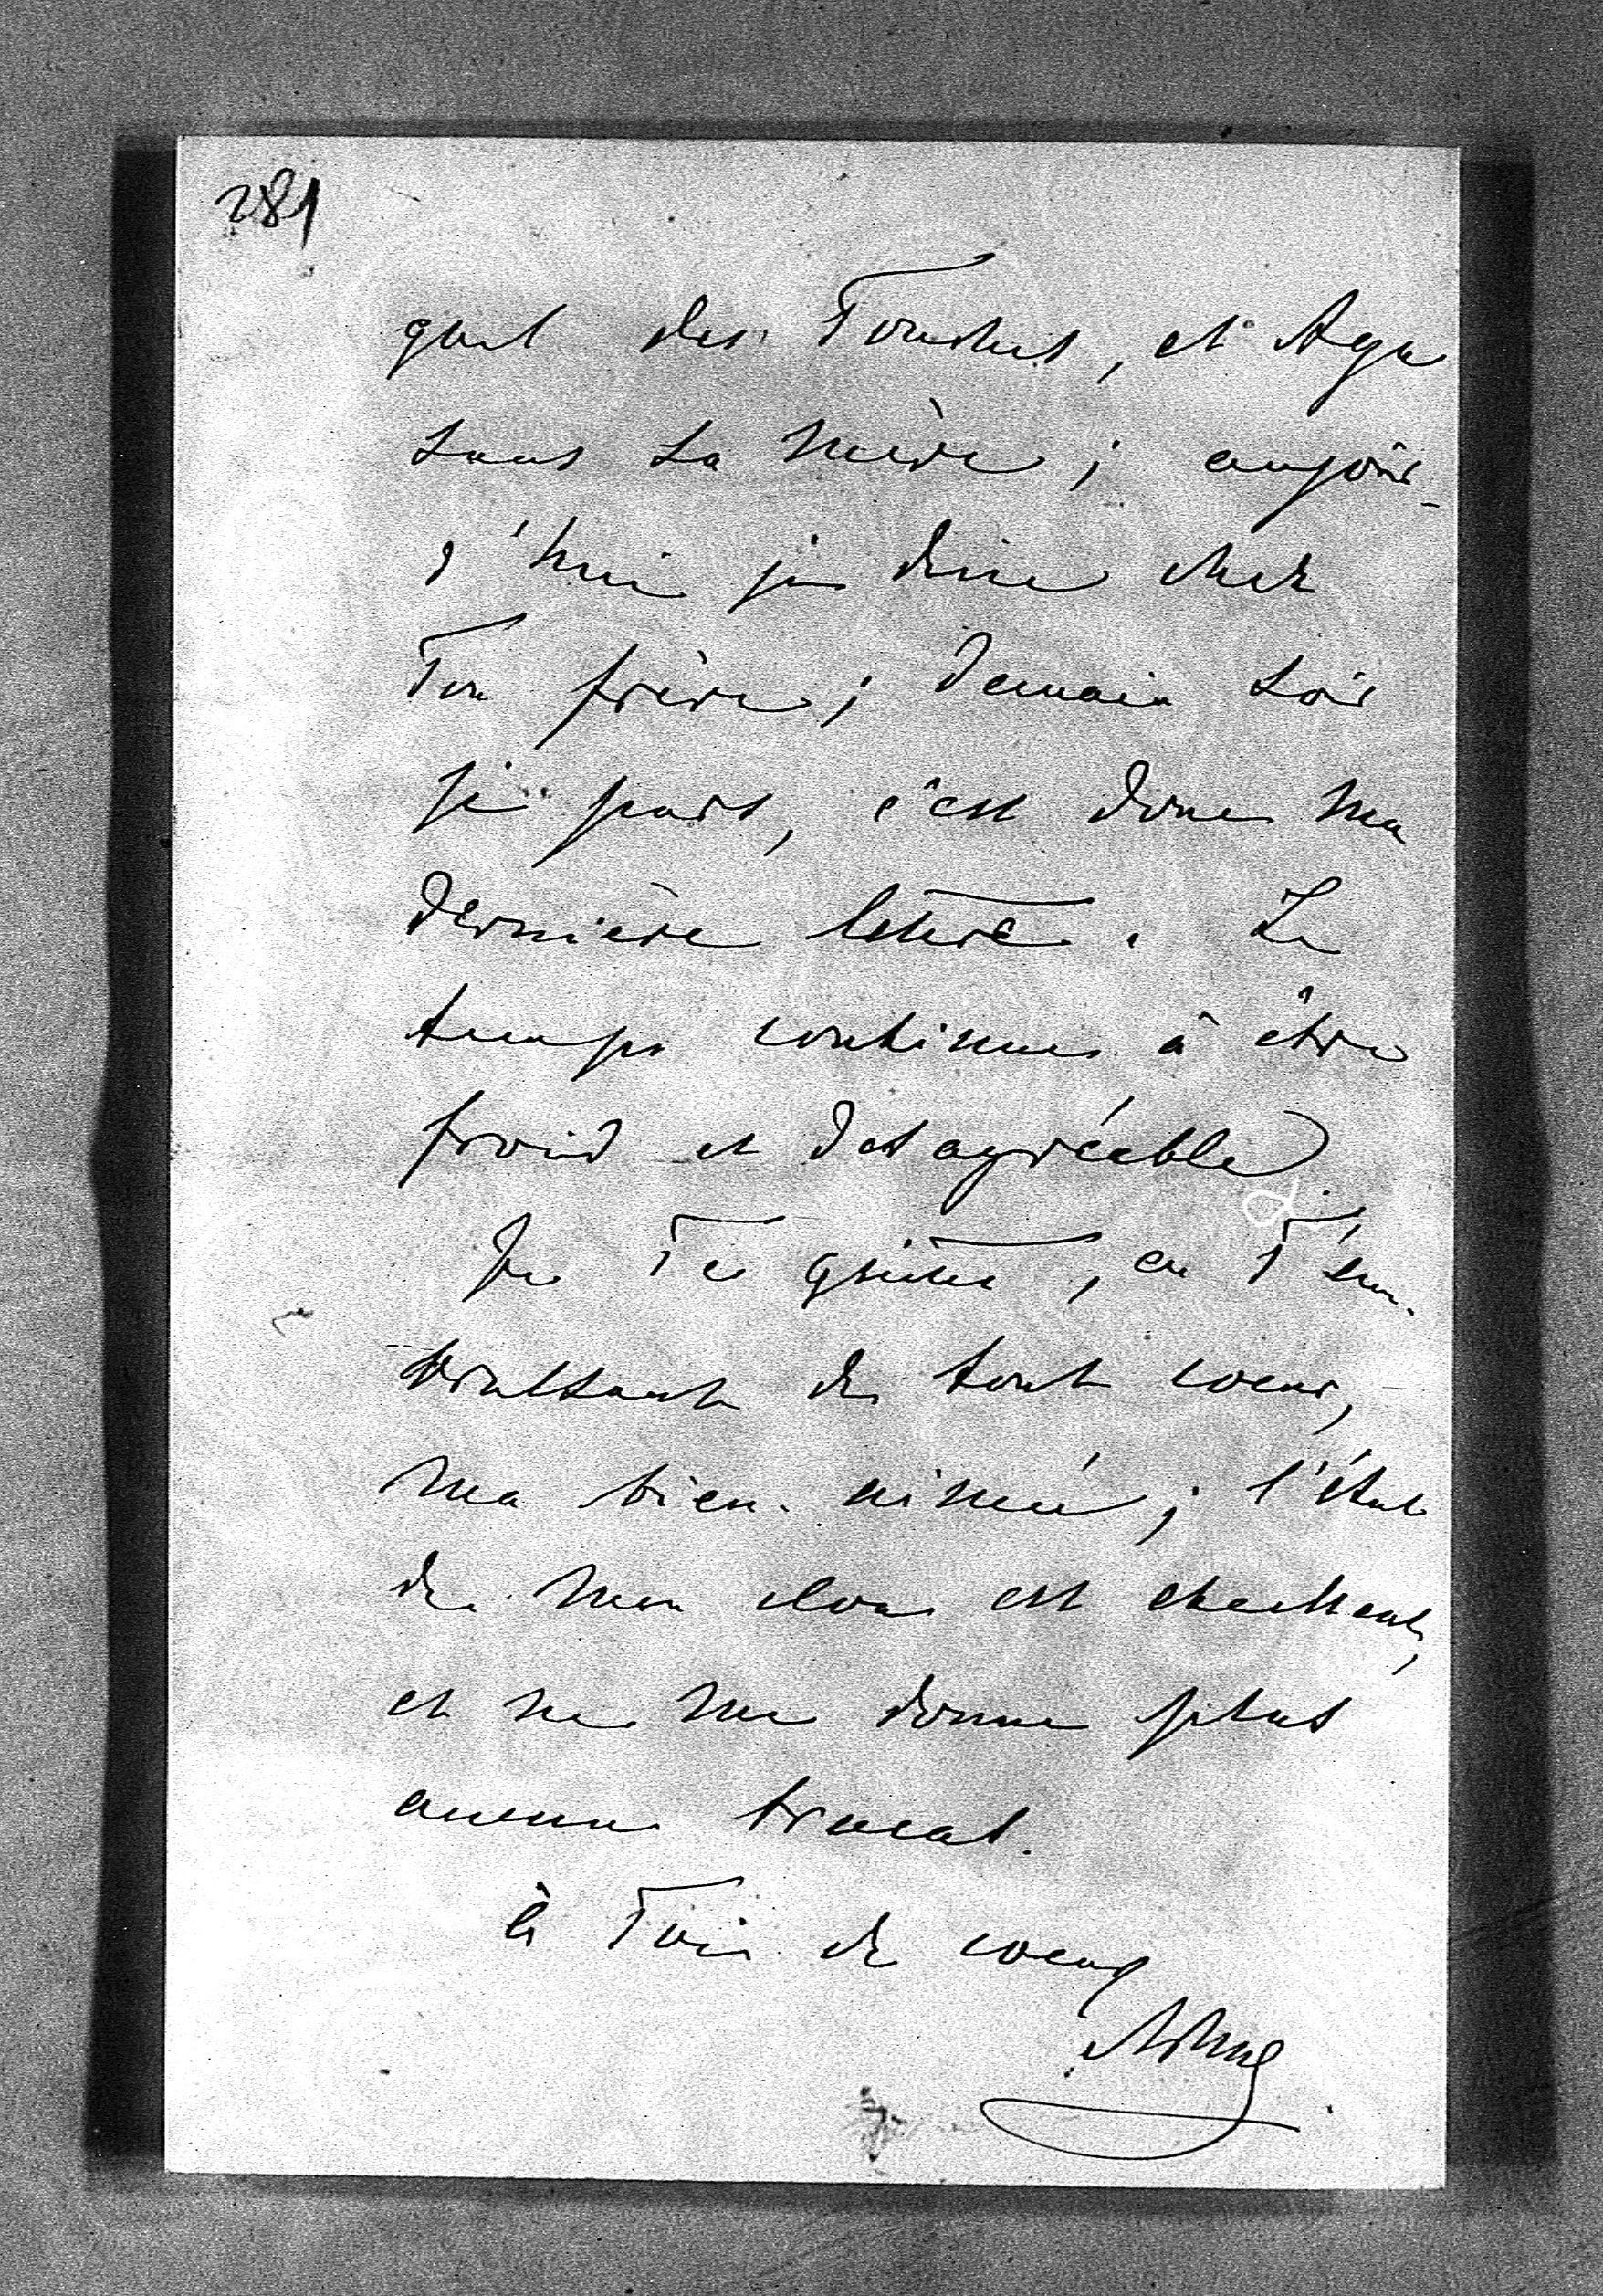 281
des Touches, et
sans sa mère ; aujour-
d'hui je dîne chez
Ton frère ; demain soir
je pars, c'est donc ma
dernière lettre. Le
temps continue à être
froid et désagréable
Je Te quitte, en T'em-
brassant de tout coeur,
ma bien-aimée ; l'état
de mon clou est excellent,
et ne me donne plus
aucun tracas.
à Toi de coeur